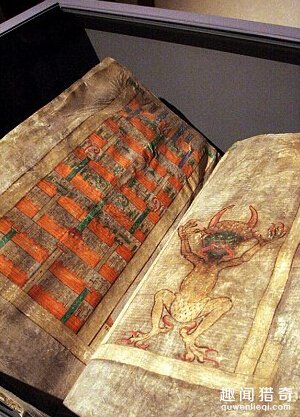 趣闻猎奇
quwenlieqi.com